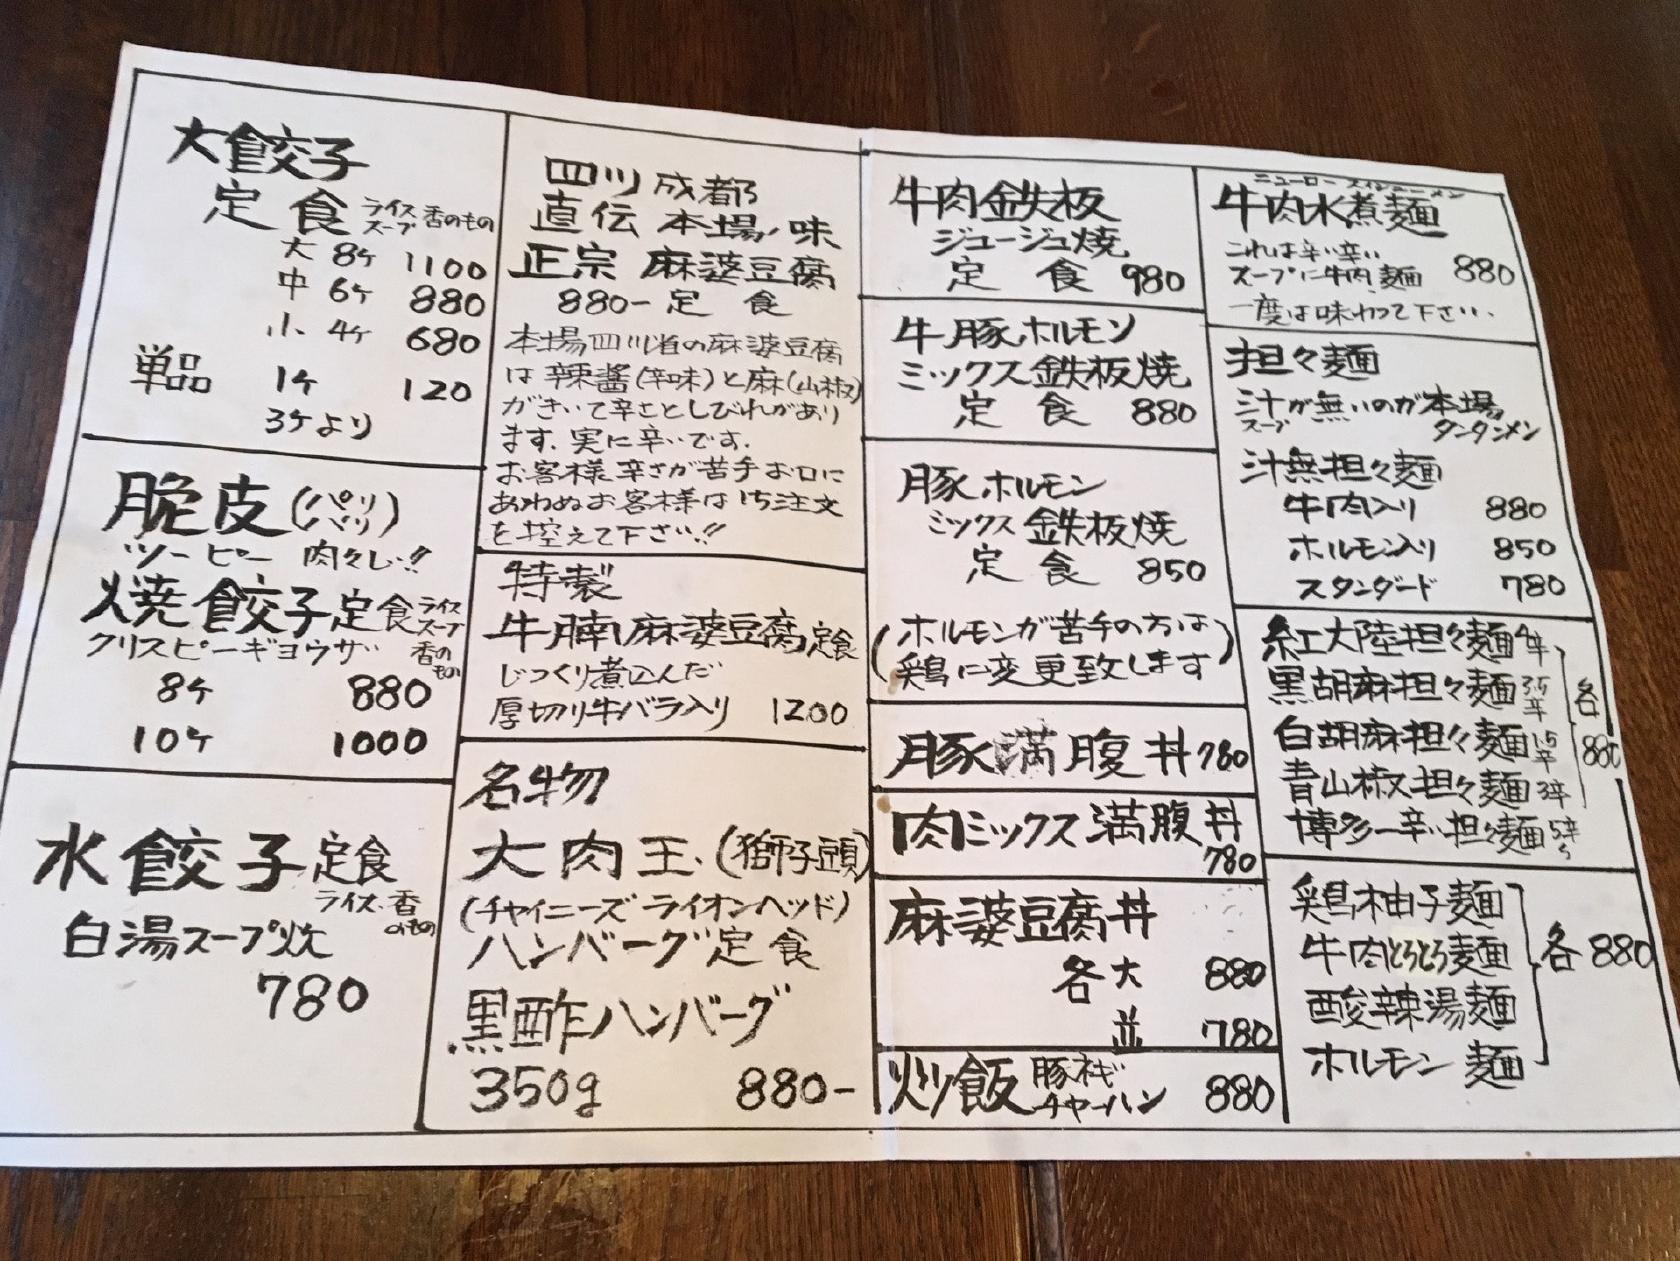 大餃子
定食 ライス 香のもの
スープ
大 8ケ 1100
中 6ケ 880
小 4ケ 680
単品 1ケ 120
3ケより
脆皮(パリパリ)
ツーピー 肉々しい!!
焼餃子定食 ライス
スープ
香のもの
クリスピーギョウザ
8ケ 880
10ケ 1000
水餃子定食
ライス・香のもの
白湯スープ炊
780
四川成都
直伝 本場ノ味
正宗 麻婆豆腐
880- 定食
本場四川省の麻婆豆腐
は辣醬(辛味)と麻(山椒)
がきいて辛さとしびれがあり
ます.実に辛いです.
お客様辛さが苦手お口に
あわぬお客様は 注文
を控えて下さい!!
特製
牛腩麻婆豆腐定食
じっくり煮込んだ
厚切り牛バラ入り 1200
名物
大肉王(獅子頭)
(チャイニーズ ライオンヘッド)
ハンバーグ定食
黒酢ハンバーグ
350g 880-
牛肉鉄板
ジュージュ焼
定食 980
牛豚ホルモン
ミックス鉄板焼
定食 880
豚ホルモン
ミックス鉄板焼
定食 850
(ホルモンが苦手の方は
鶏に変更致します)
豚満腹丼 780
肉ミックス満腹丼
780
麻婆豆腐丼
各大 880
並 780
炒飯 豚ネギ
チャーハン 880
牛肉水煮麺
これは辛い辛い
スープに牛肉麺 880
一度は味わって下さい.
担々麺
汁が無いのが本場
スープ タンタンメン
汁無担々麺
牛肉入り 880
ホルモン入り 850
スタンダード 780
紅大陸担々麺 4辛
黒胡麻担々麺 3.5辛
白胡麻担々麺 1.5辛
青山椒担々麺 3辛
博多一辛い担々麺 5辛から
各880
鶏柚子麺
牛肉とろとろ麺
酸辣湯麺
ホルモン麺
各880